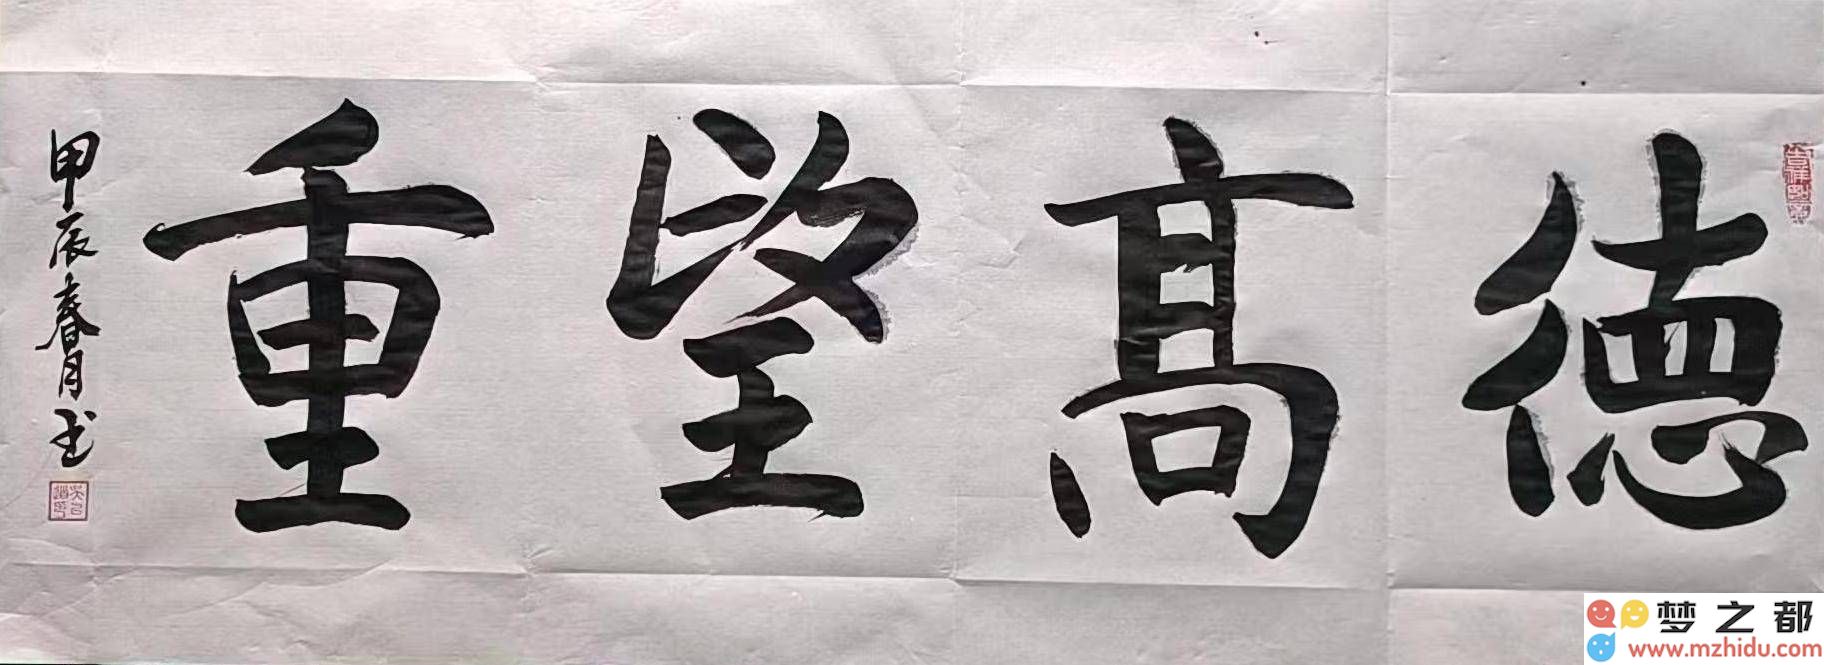 德髙望重
甲辰春月书
梦之都
www.mzhidu.com